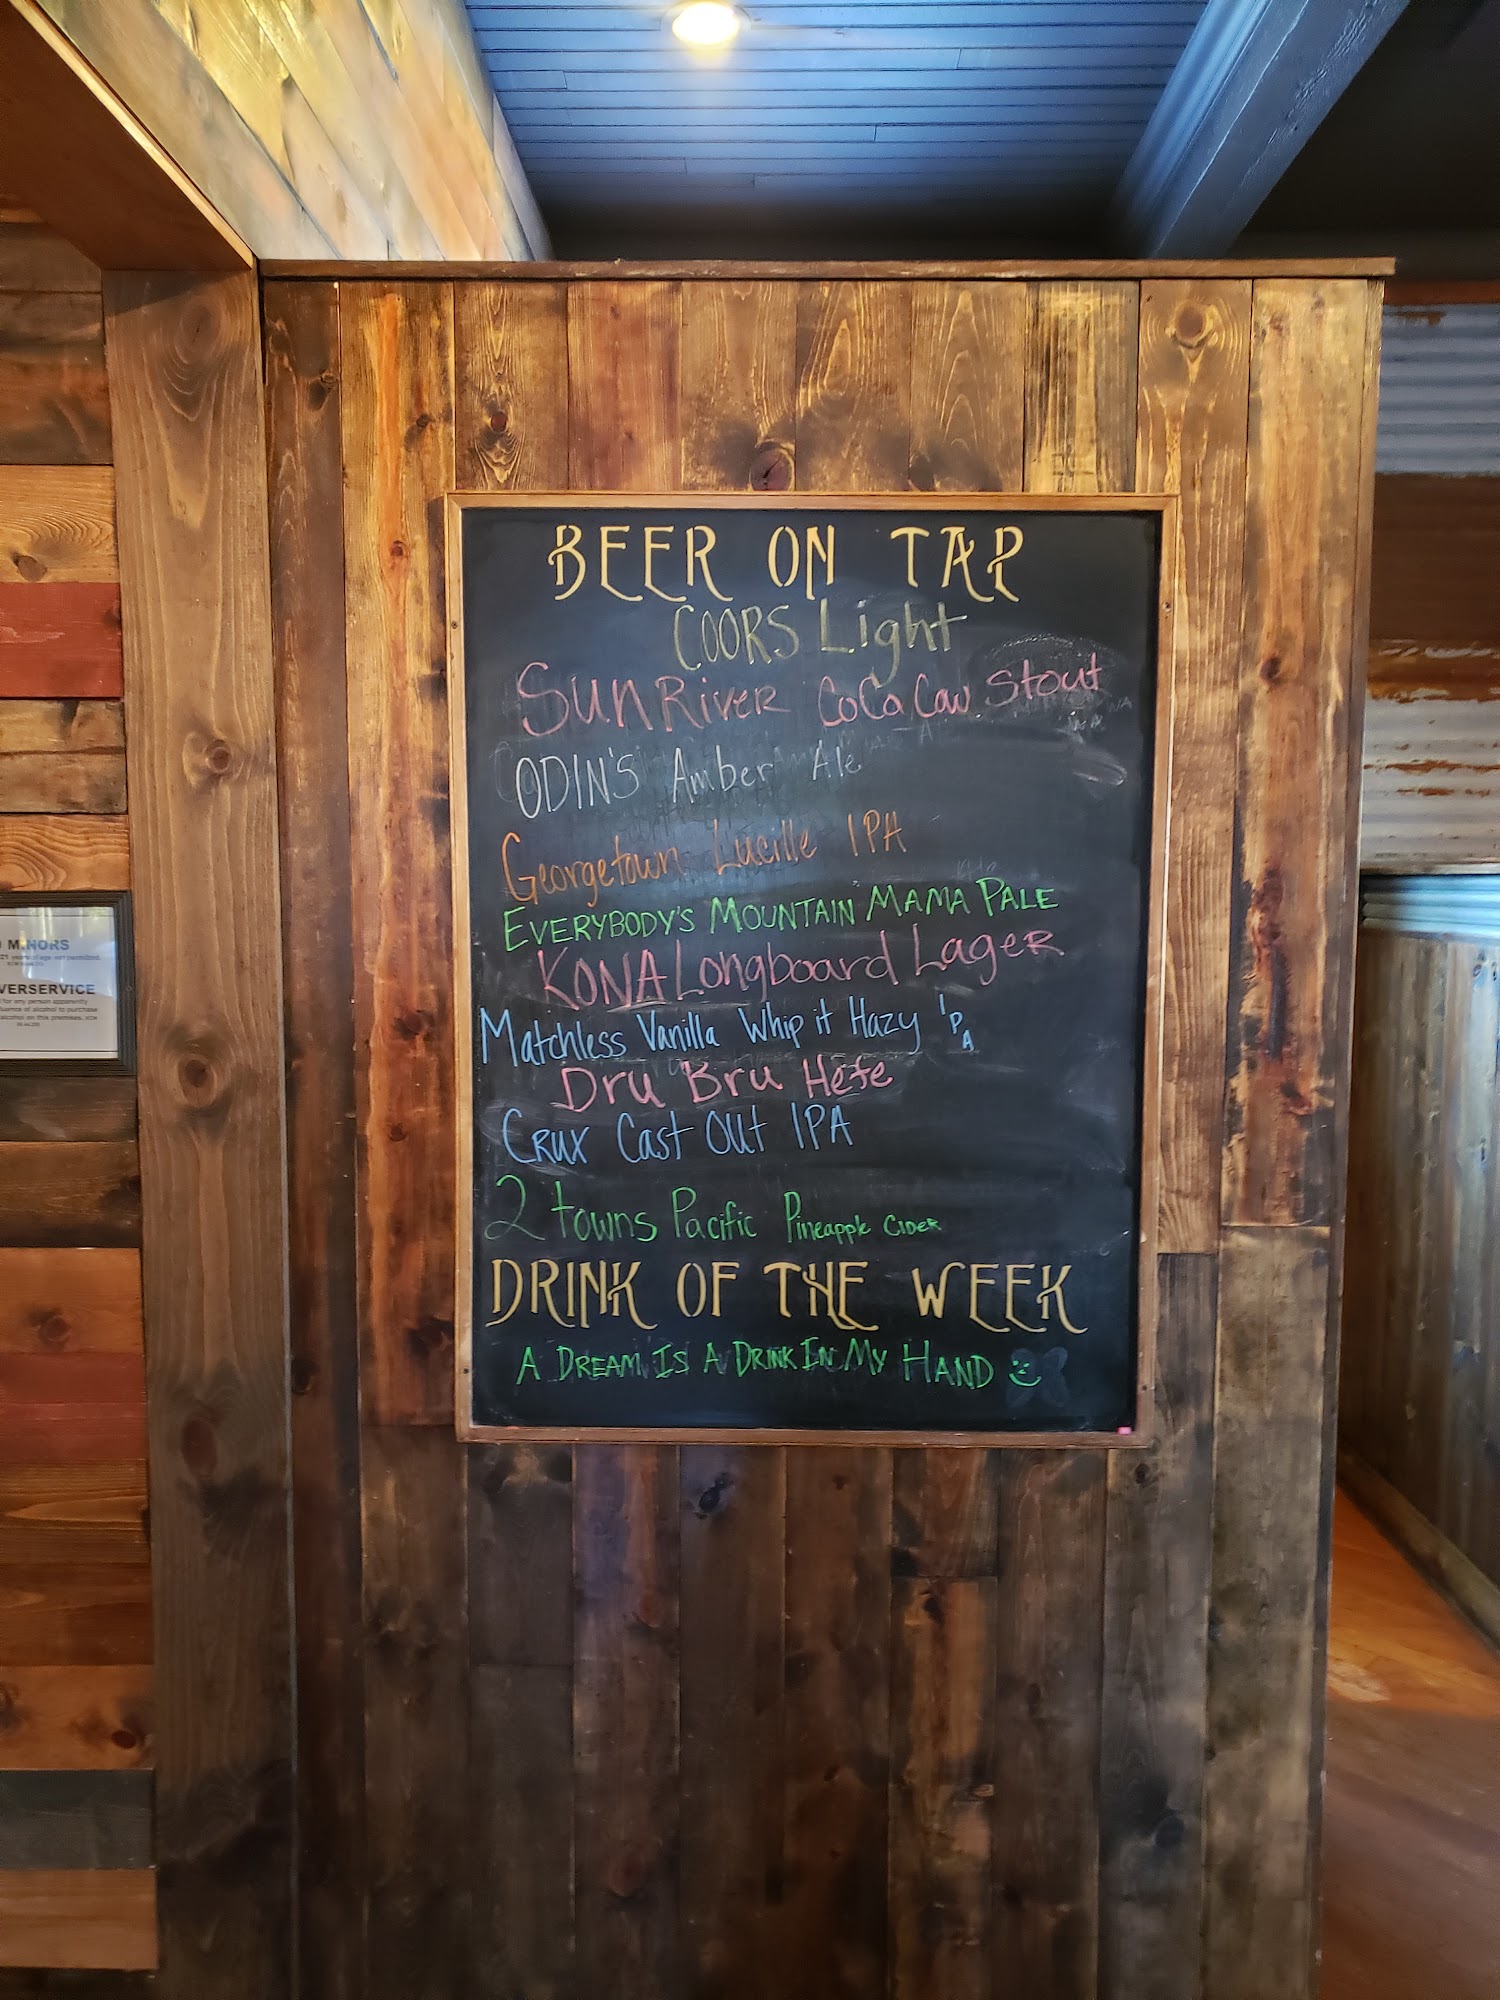 BEER ON TAP
COORS Light
SunRiver CoCa Cow Stout
ODIN'S Amber Ale
Georgetown Lucille IPA
EVERYBODY'S MOUNTAIN MAMA PALE
KONA Longboard Lager
Matchless Vanilla Whip it Hazy IPA
Dru Bru Hefe
CRUX Cast Out IPA
2 towns Pacific Pineapple CIDER
DRINK OF THE WEEK
A DREAM IS A DRINK IN MY HAND
MINORS
21 years of age not permitted.
VERSERVICE
for any person apparently
fluence of alcohol to purchase
alcohol on this premises.